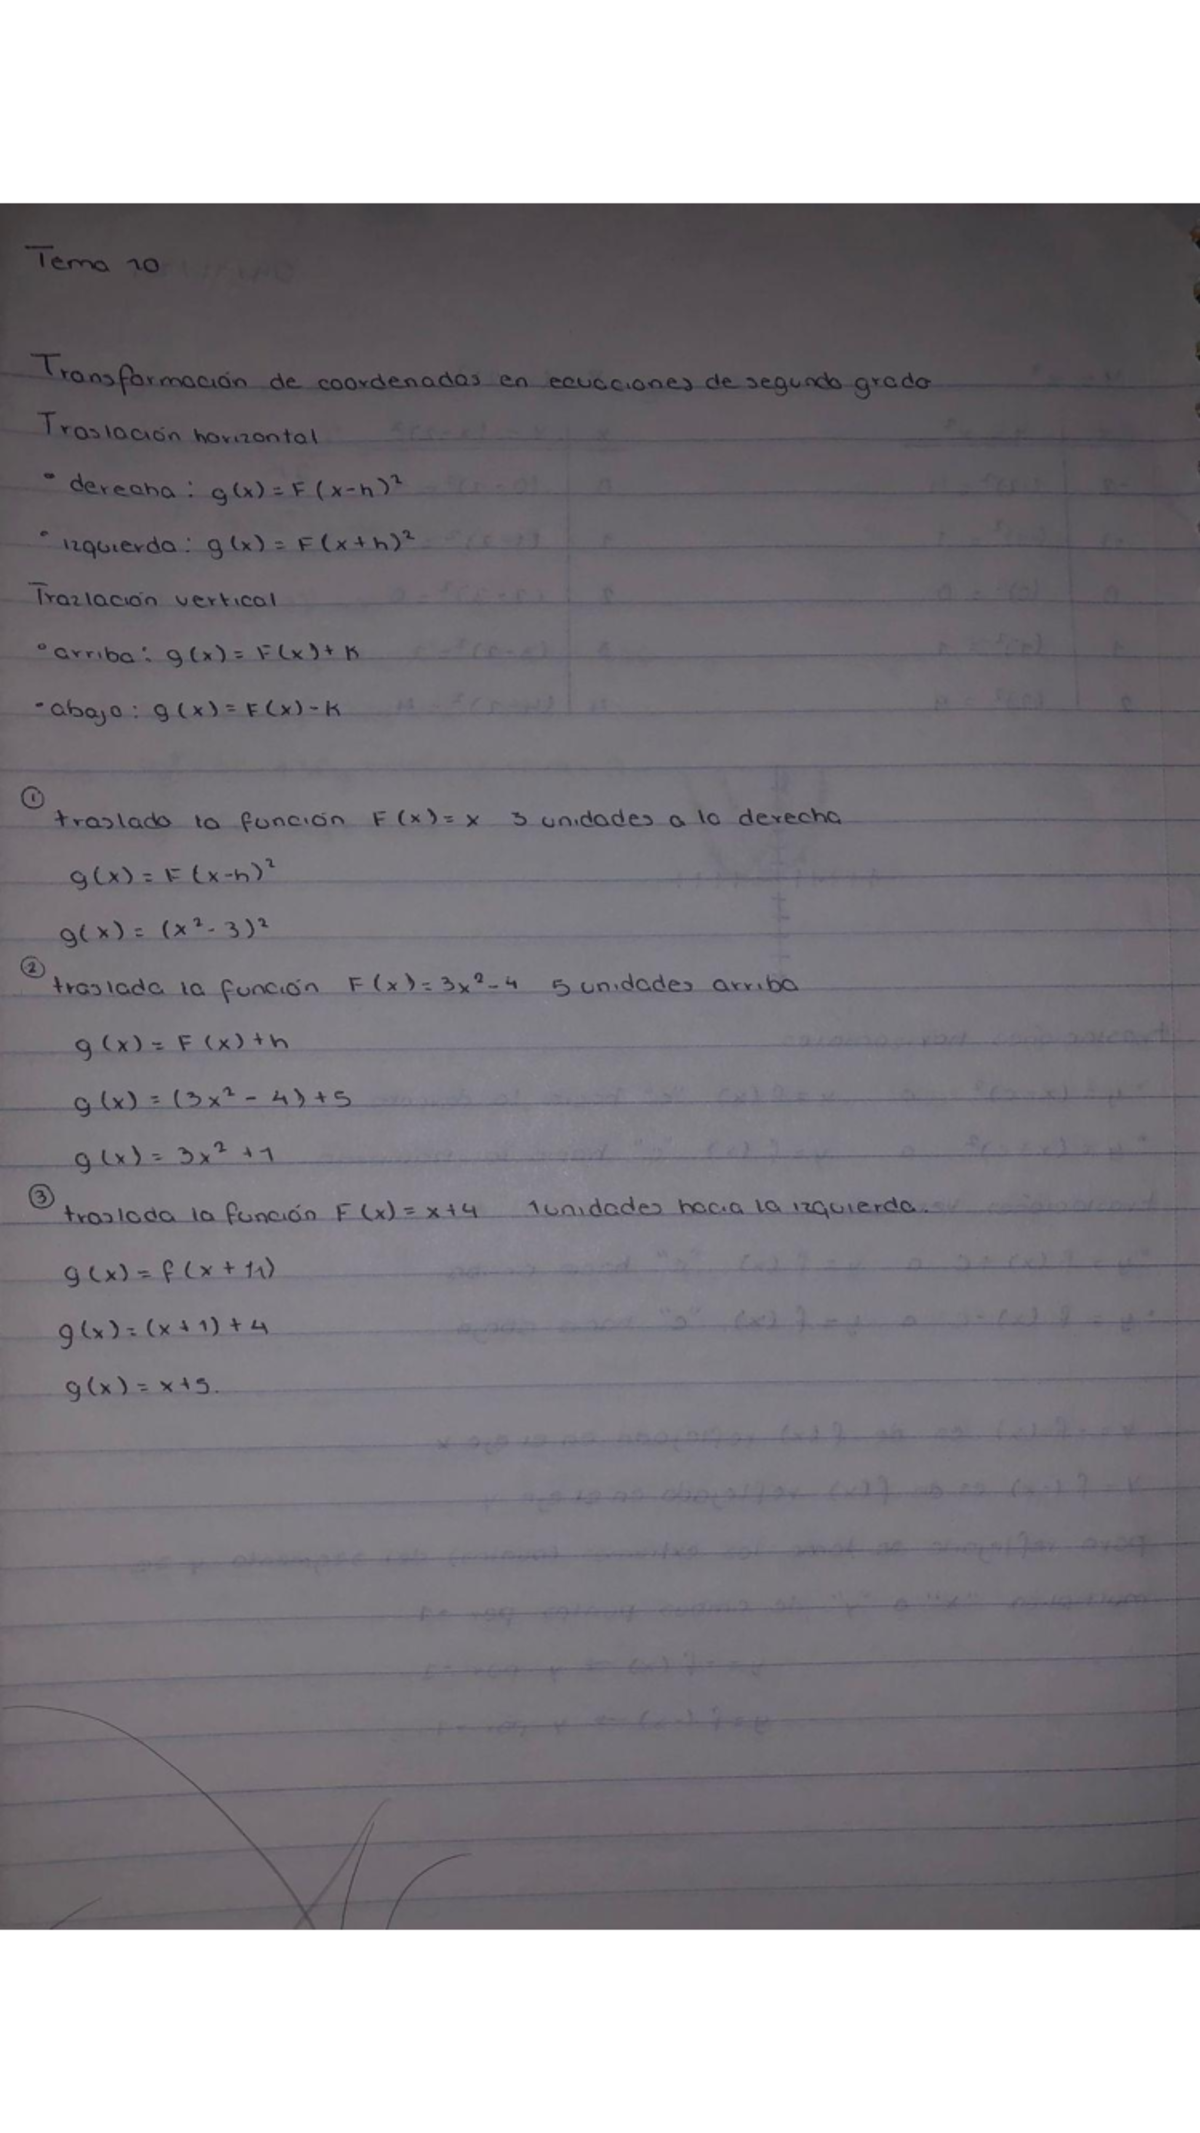 Tema 10
Transformación de coordenadas en ecuaciones de segundo grado
Traslación horizontal
• derecha: g(x) = F(x-h)²
• izquierda: g(x) = F(x+h)²
Trazlación vertical
• arriba: g(x) = F(x) + K
• abajo: g(x) = F(x) - K
① traslado la función F(x) = x 3 unidades a la derecha
g(x) = F(x-h)²
g(x) = (x² - 3)²
② traslada la función F(x) = 3x² - 4 5 unidades arriba
g(x) = F(x) + h
g(x) = (3x² - 4) + 5
g(x) = 3x² + 1
③ traslada la función F(x) = x+4 1 unidades hacia la izquierda.
g(x) = f(x + 1)
g(x) = (x + 1) + 4
g(x) = x+5.